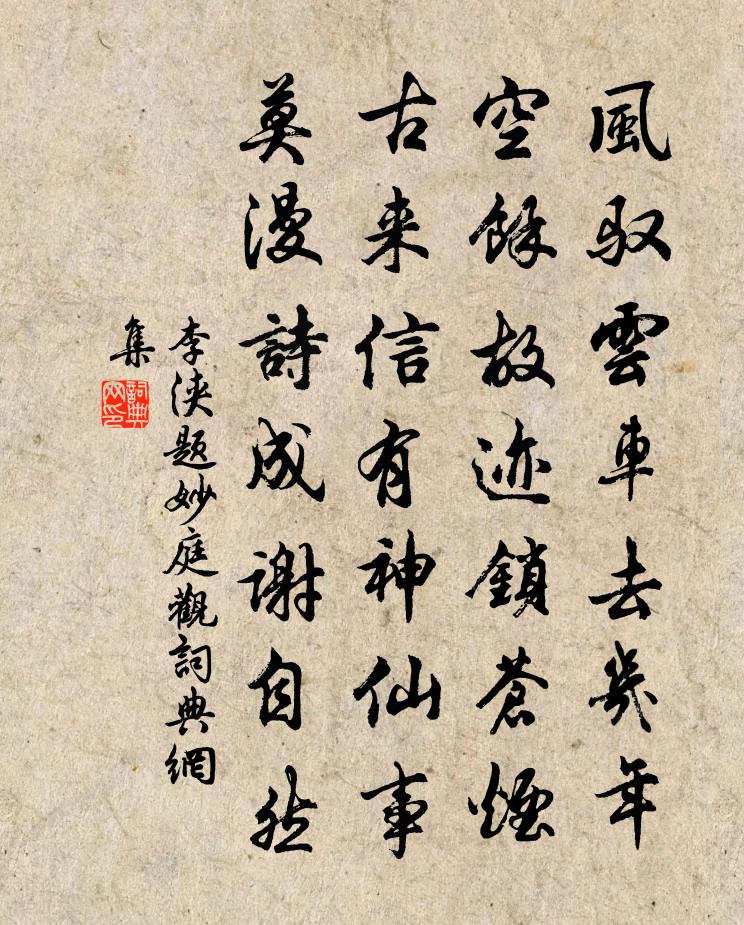 風馭雲車去幾年
空餘故迹鎖蒼煙
古来信有神仙事
莫漫詩成謝自然
李浹题妙庭觀詞典網
集
詞典
网印